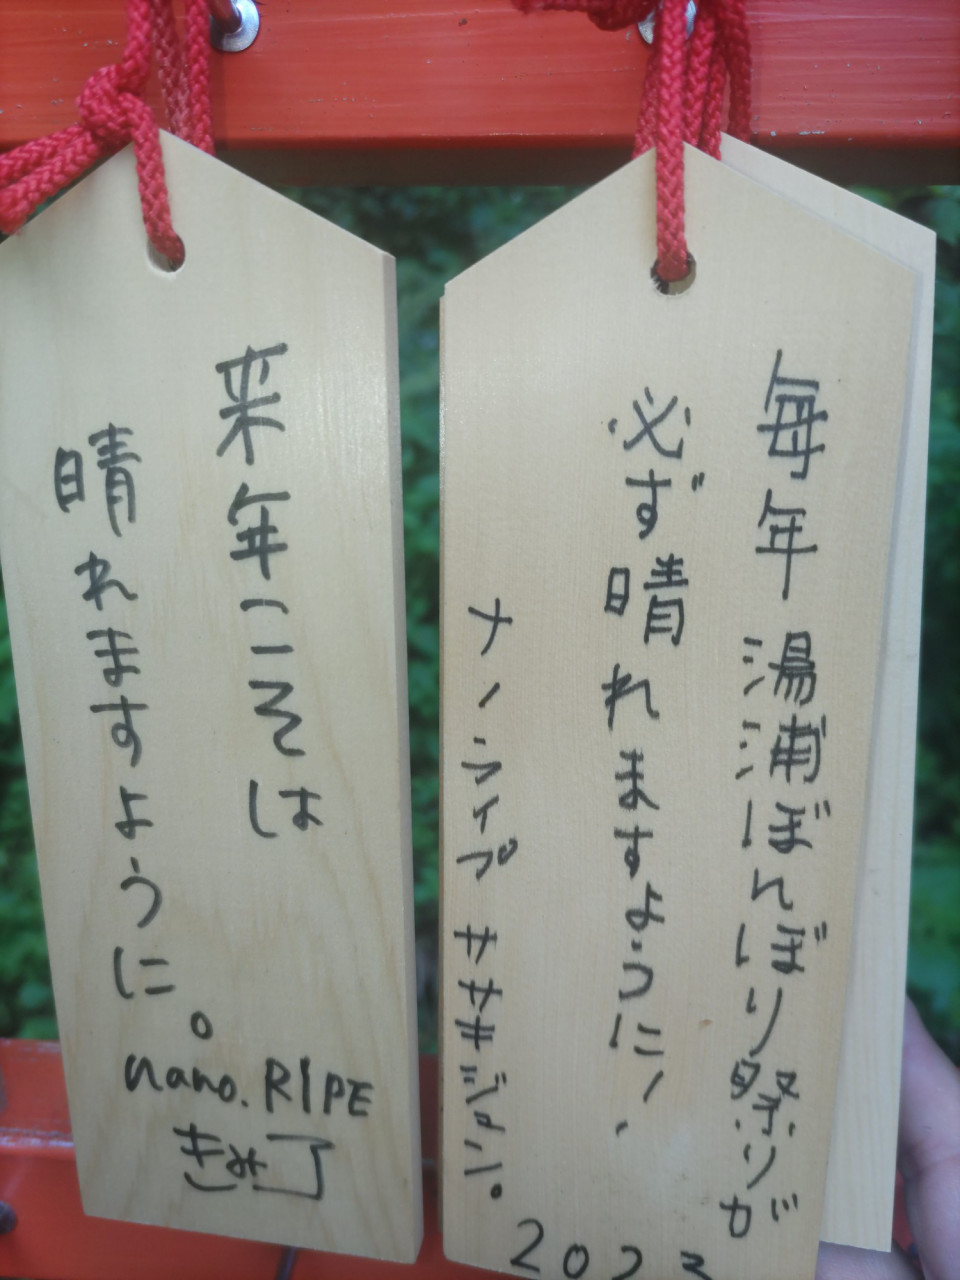 毎年 湯涌ぼんぼり祭りが
必ず晴れますように、、
ナノライプ ササキジュン。
2023
来年こそは
晴れますように。
nano.RIPE
きみコ